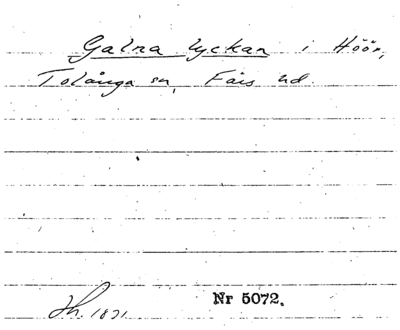 Galna lyckan i Höör,
Tolånga sn, Färs hd.
Nr 5072.
1821